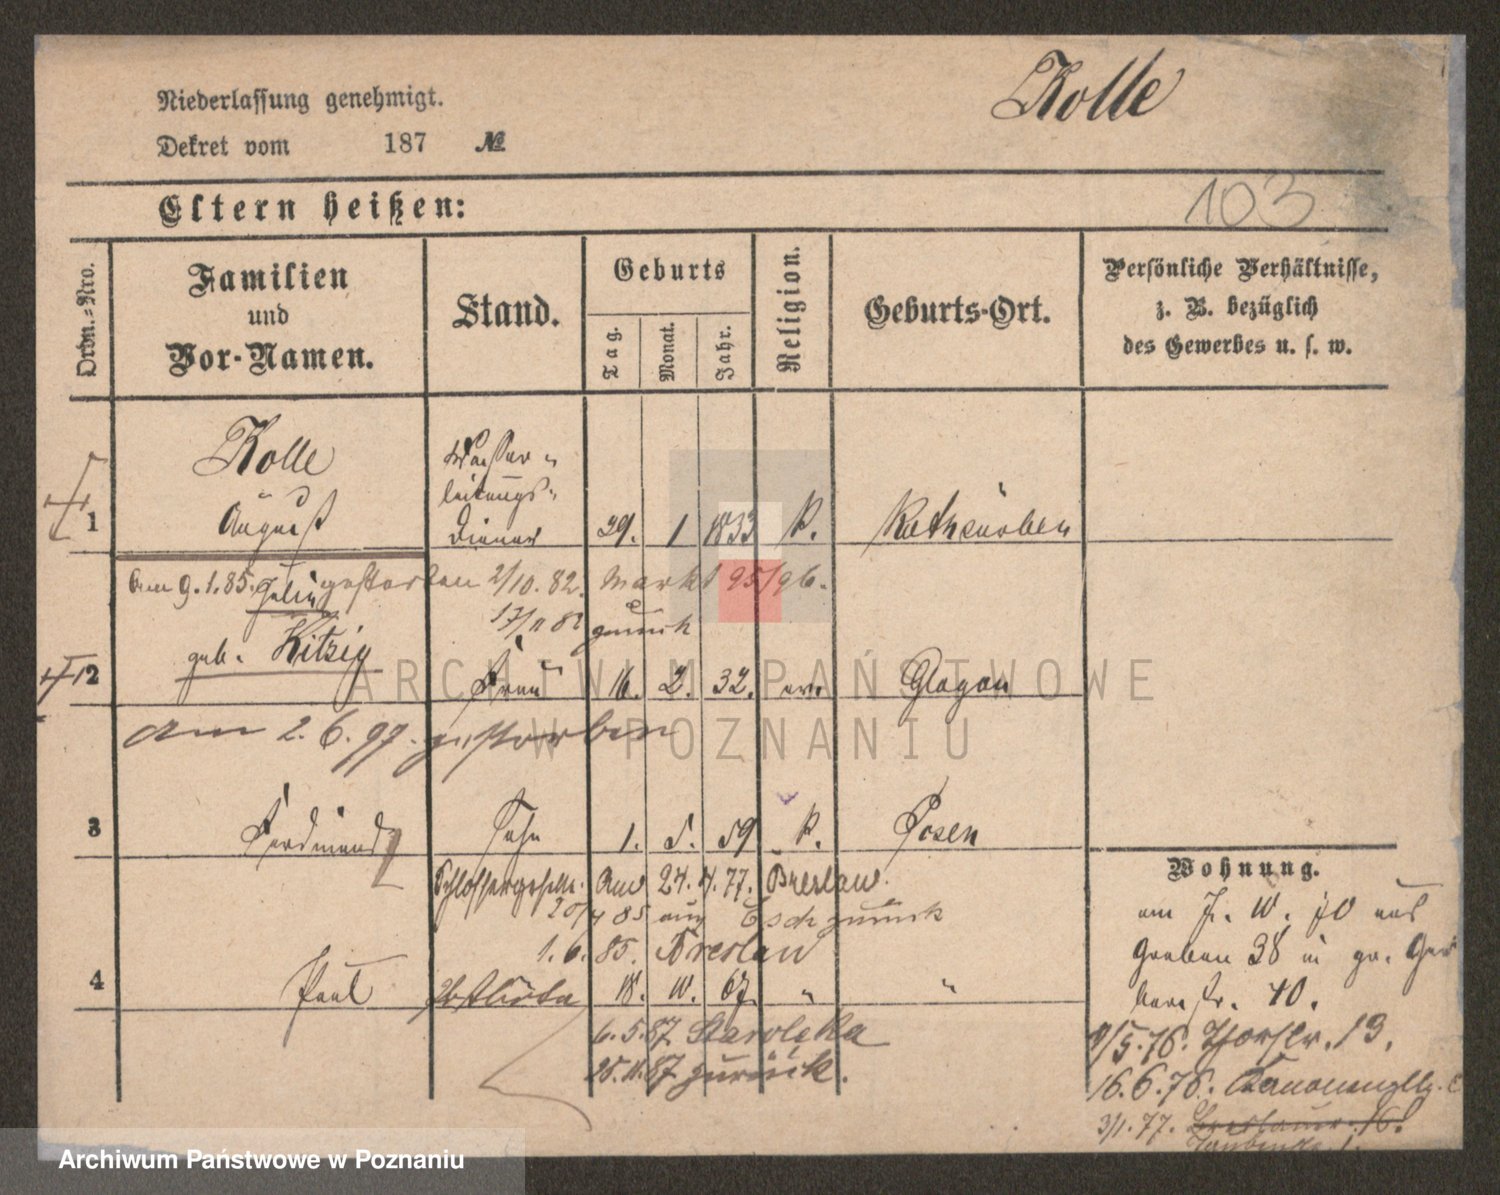 Kolle
Niederlassung genehmigt.
Dekret vom 187 №
103
Eltern heißen:
Ordn.-Nro.
Familien und Vor-Namen.
Stand.
Geburts
Tag.
Monat.
Jahr.
Religion.
Geburts-Ort.
Persönliche Verhältnisse,
z. B. bezüglich
des Gewerbes u. s. w.
Kolle
Wasser-
leitungs-
1 August Diener 29. 1 1833 K.
Am 9.1.85. gestorben 2/10. 82. Markt 95/96.
17/11 82 zurück
geb. Kitzig
2 Frau 16. 2. 32. ev. Glogau
Am 2.6.97. gestorben
3 Ferdinand Sohn 1. 5. 59 K. Posen
Schlossergeselle. Am 24. 4. 77. Breslau.
20/4 85 aus zurück
1.6.85. Breslau
4 Paul 18. 10. 67. " "
6.5.87. Staroleka
25.11.87 zurück.
Wohnung.
Graben 38 in gr. Ger
berstr. 40.
9/5.76. Thorstr. 13.
16.6.76.
3/1.77. 16.
ARCHIWUM PAŃSTWOWE
W POZNANIU
Archiwum Państwowe w Poznaniu